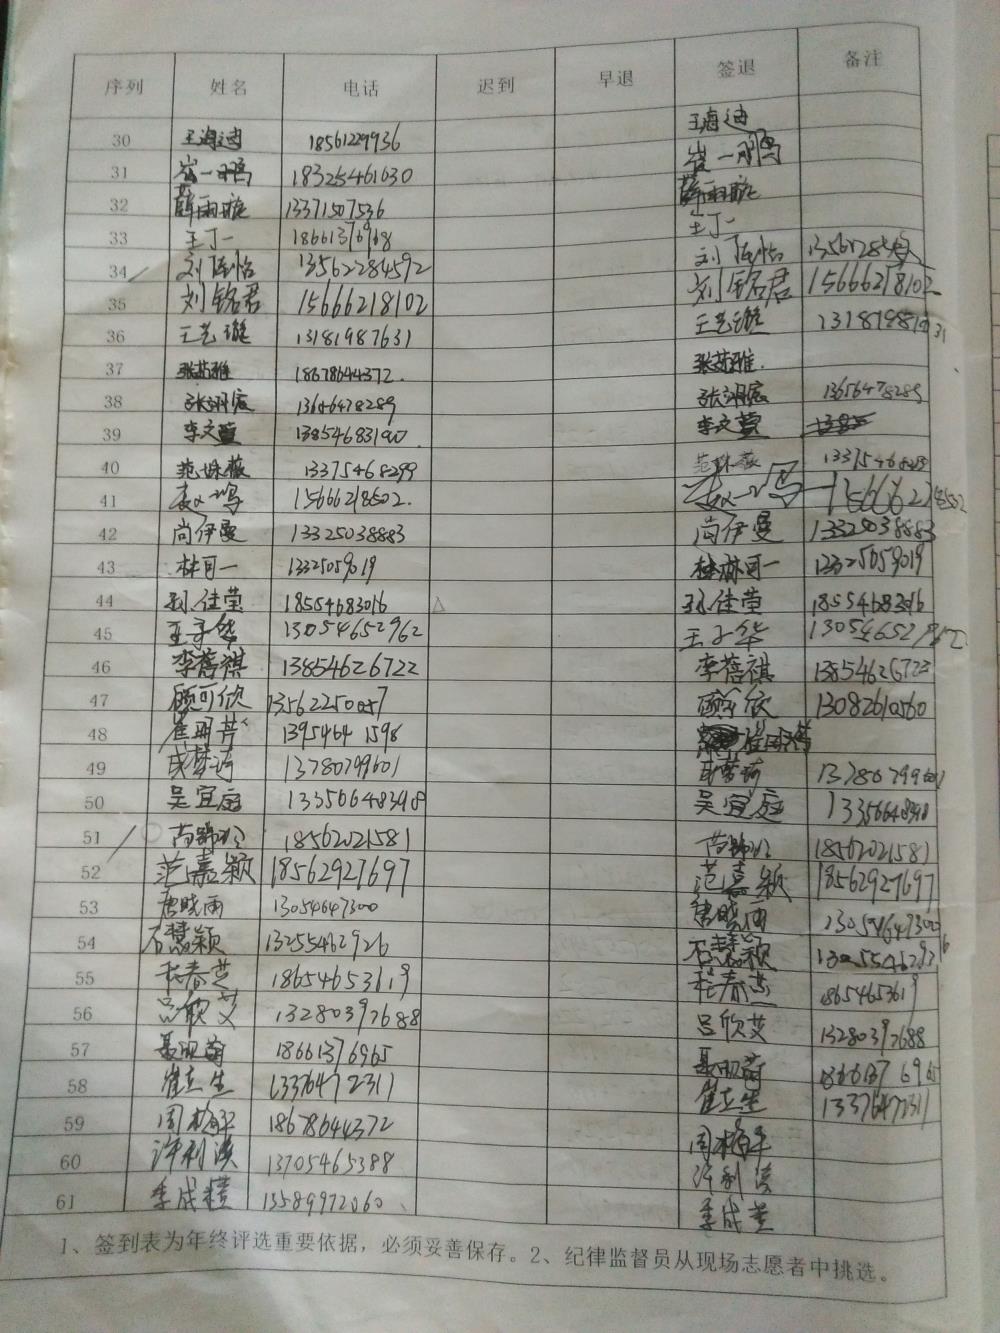 序列 姓名 电话 迟到 早退 签退 备注
30 王海迪 18561229936 王海迪
31 崔一鹏 18325461630 崔一鹏
32 薛雨璇 13371507536 薛雨璇
33 王丁一 18661376968 王丁一
34 刘 怡 13562284592 刘 怡
35 刘铭君 15666218102 刘铭君 15666218102
36 王艺璇 13181987631 王艺璇
37 张茹雅 18678644372. 张茹雅.
38 13656478289 13656478289
39 李文萱 13854683190 李文萱
40 范姝薇 13375468299 范姝薇 13375468299
41 15666218502.
42 尚伊曼 13325038883 尚伊曼 13325038883
43 林可一 13325059019 林可一 13325059019
44 孙佳莹 18554683016 孙佳莹 18554683016
45 王子华 13054652962 王子华
46 李蓓祺 13854626722 李蓓祺
47 顾可欣 13562250057 13082610560
48 1395464 1598
49 13780799601 13780799601
50 吴宜庭 13356648398 吴宜庭
51 18562021581 18562021581
52 范嘉颖 18562927697 范嘉颖 18562927697
53 唐晓雨 13054647300 唐晓雨 13054647300
54 石慧颖 13255462926 石慧颖
55 杜春芝 18654653619 杜春芝 18654653619
56 吕欣艾 13280392688 吕欣艾 13280392688
57 18661376965 18661376965
58 崔立生 13376472311 崔立生 13376472311
59 周 18678644372 周
60 许利滨 13705465388 许利滨
61 季成 13589972060 季成
1、签到表为年终评选重要依据，必须妥善保存。2、纪律监督员从现场志愿者中挑选。